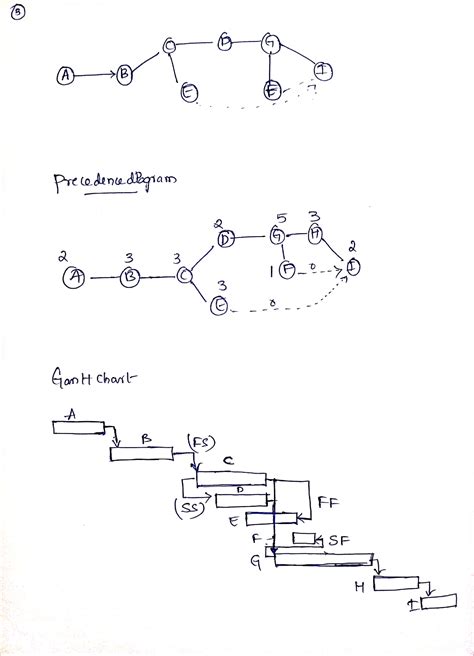 B
C D G
A B I
E E
Precedence diagram
5 3
2 D G H 2
2 3 3
A B C 1 F 0 I
3
E 0
Gantt chart
A
B (FS)
C
(SS) D
E FF
F SF
G
H
I